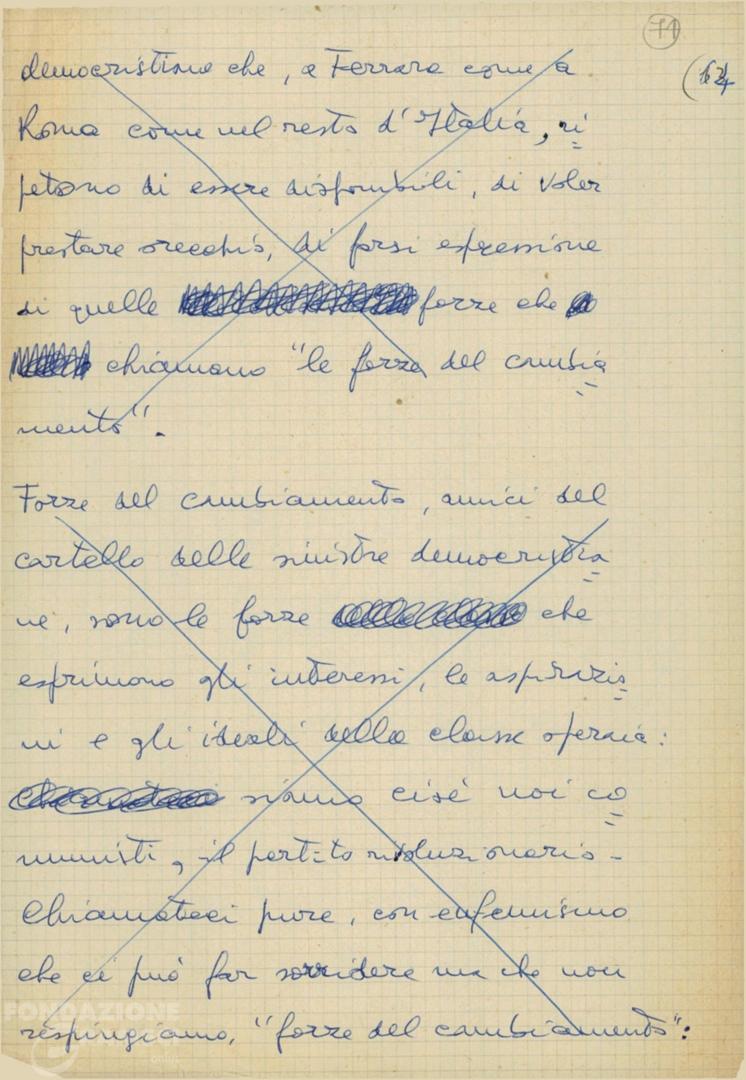 71
democristiane che, a Ferrara come a
Roma come nel resto d'Italia, ri=
petono di essere disponibili, di voler
prestare orecchio, di farsi espressione
di quelle forze che
chiamano "le forze del cambia=
mento".
Forze del cambiamento, amici del
cartello delle sinistre democristia=
ne, sono le forze che
esprimono gli interessi, le aspirazio=
ni e gli ideali della classe operaia:
siamo cioè noi co=
munisti, il partito rivoluzionario -
Chiamateci pure, con eufemismo
che ci può far sorridere ma che non
respingiamo, "forze del cambiamento":
FONDAZIONE